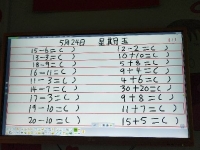 5月24日 星期五
15-6=( ) 12-2=( )
13-3=( ) 10+10=( )
18-9=( ) 5+8=( )
16-11=( ) 9+4=( )
11-3=( ) 4+6=( )
14-7=( ) 30+20=( )
17-3=( ) 9+8=( )
19-10=( ) 11+7=( )
20-10=( ) 15+5=( )